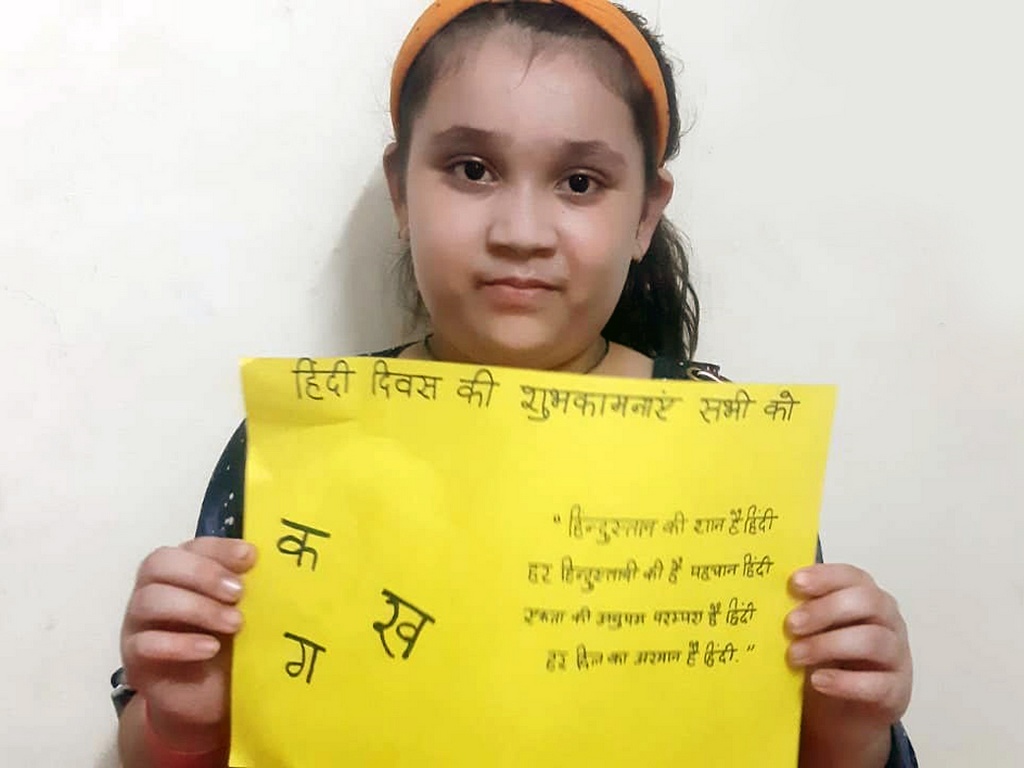 हिंदी दिवस की शुभकामनाएं सभी को
क
ख
ग
" हिन्दुस्तान की शान है हिंदी
हर हिन्दुस्तानी की है पहचान हिंदी
एकता की अनुपम परम्परा है हिंदी
हर दिल का अरमान है हिंदी. "